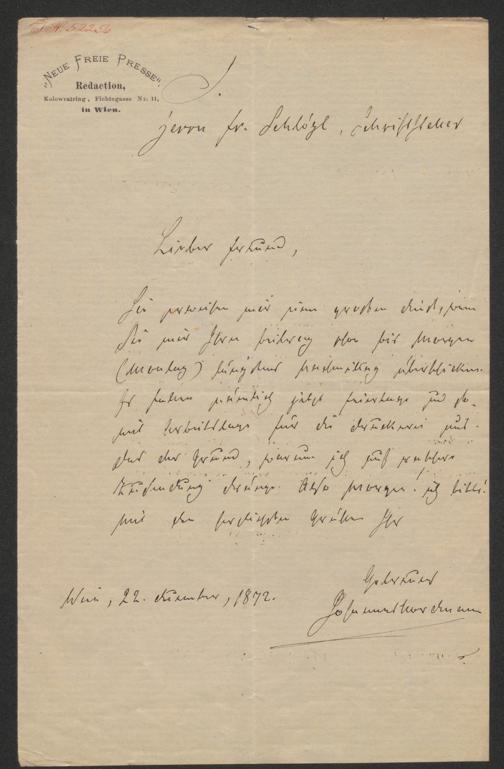 "NEUE FREIE PRESSE".
Redaction,
Kolowratring, Fichtegasse Nr. 11,
in Wien.
Herrn Fr. Schlögl, Schriftsteller
Lieber Freund,
Sie erweisen mir einen großen Dienst, wenn
Sie mir Ihren Beitrag schon bis Morgen
(Montag) längstens Nachmittag überschicken.
Es fallen nämlich jetzt Feiertage und so-
mit Arbeitstage für die Druckerei aus.
Das der Grund, warum ich auf
Zusendung dränge. Also Morgen! ich bitte!
Mit den herzlichsten Grüßen Ihr
Getreuer
Wien, 22. Dezember, 1872.
Johannes Nordmann